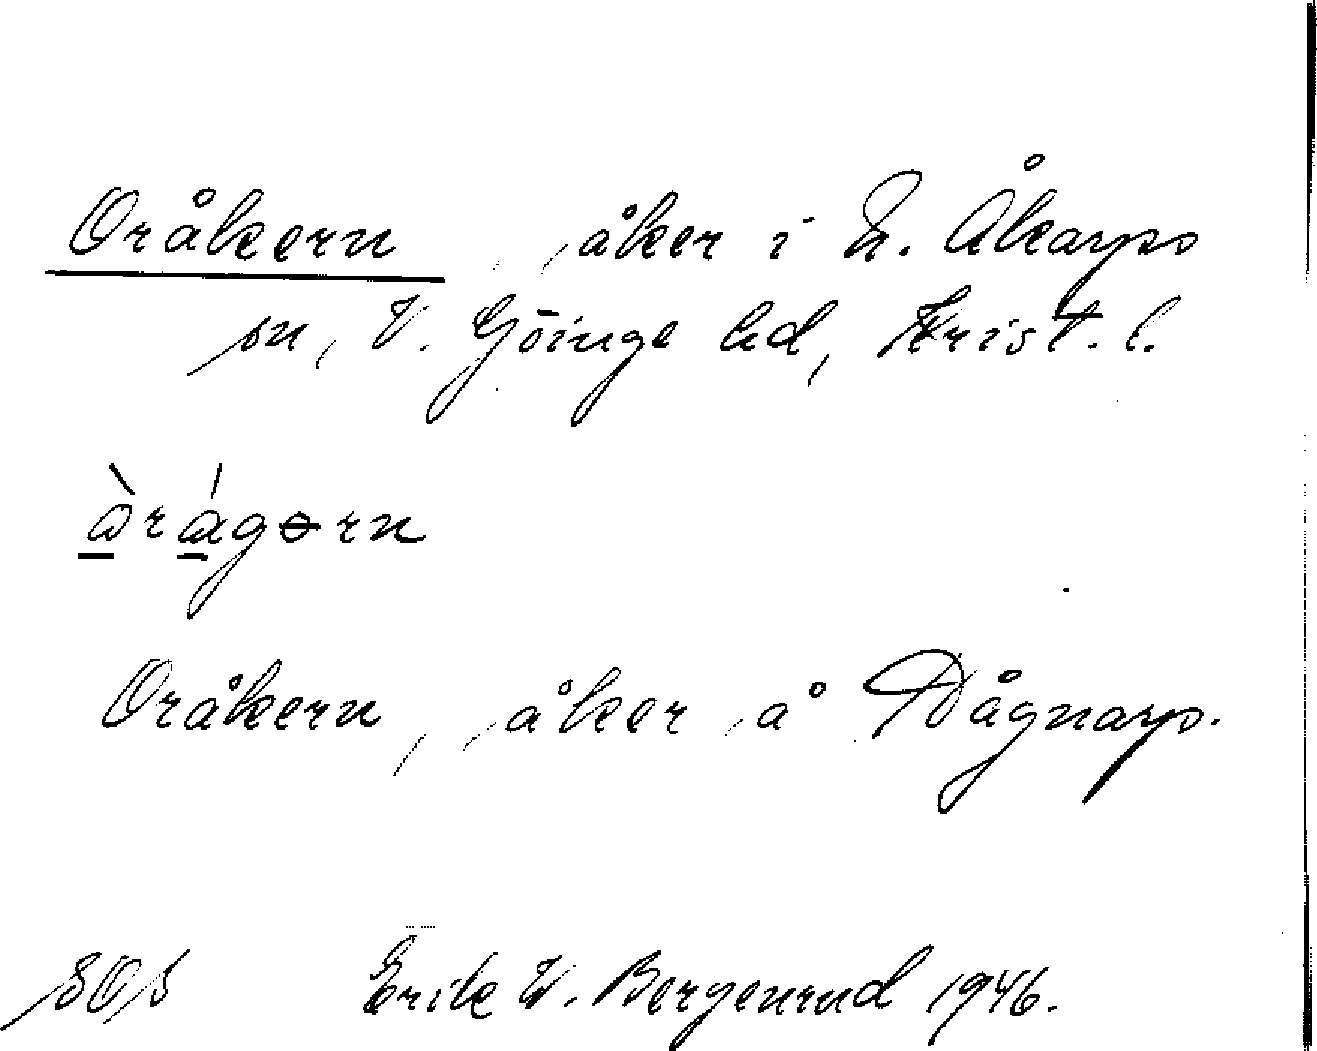 Oråkern, åker i N. Åkarps
sn, V. Göinge hd, Krist. l.
àrágɵrn
Oråkern, åker å Dågnarp.
SOS Erik W. Bergenrud 1946.